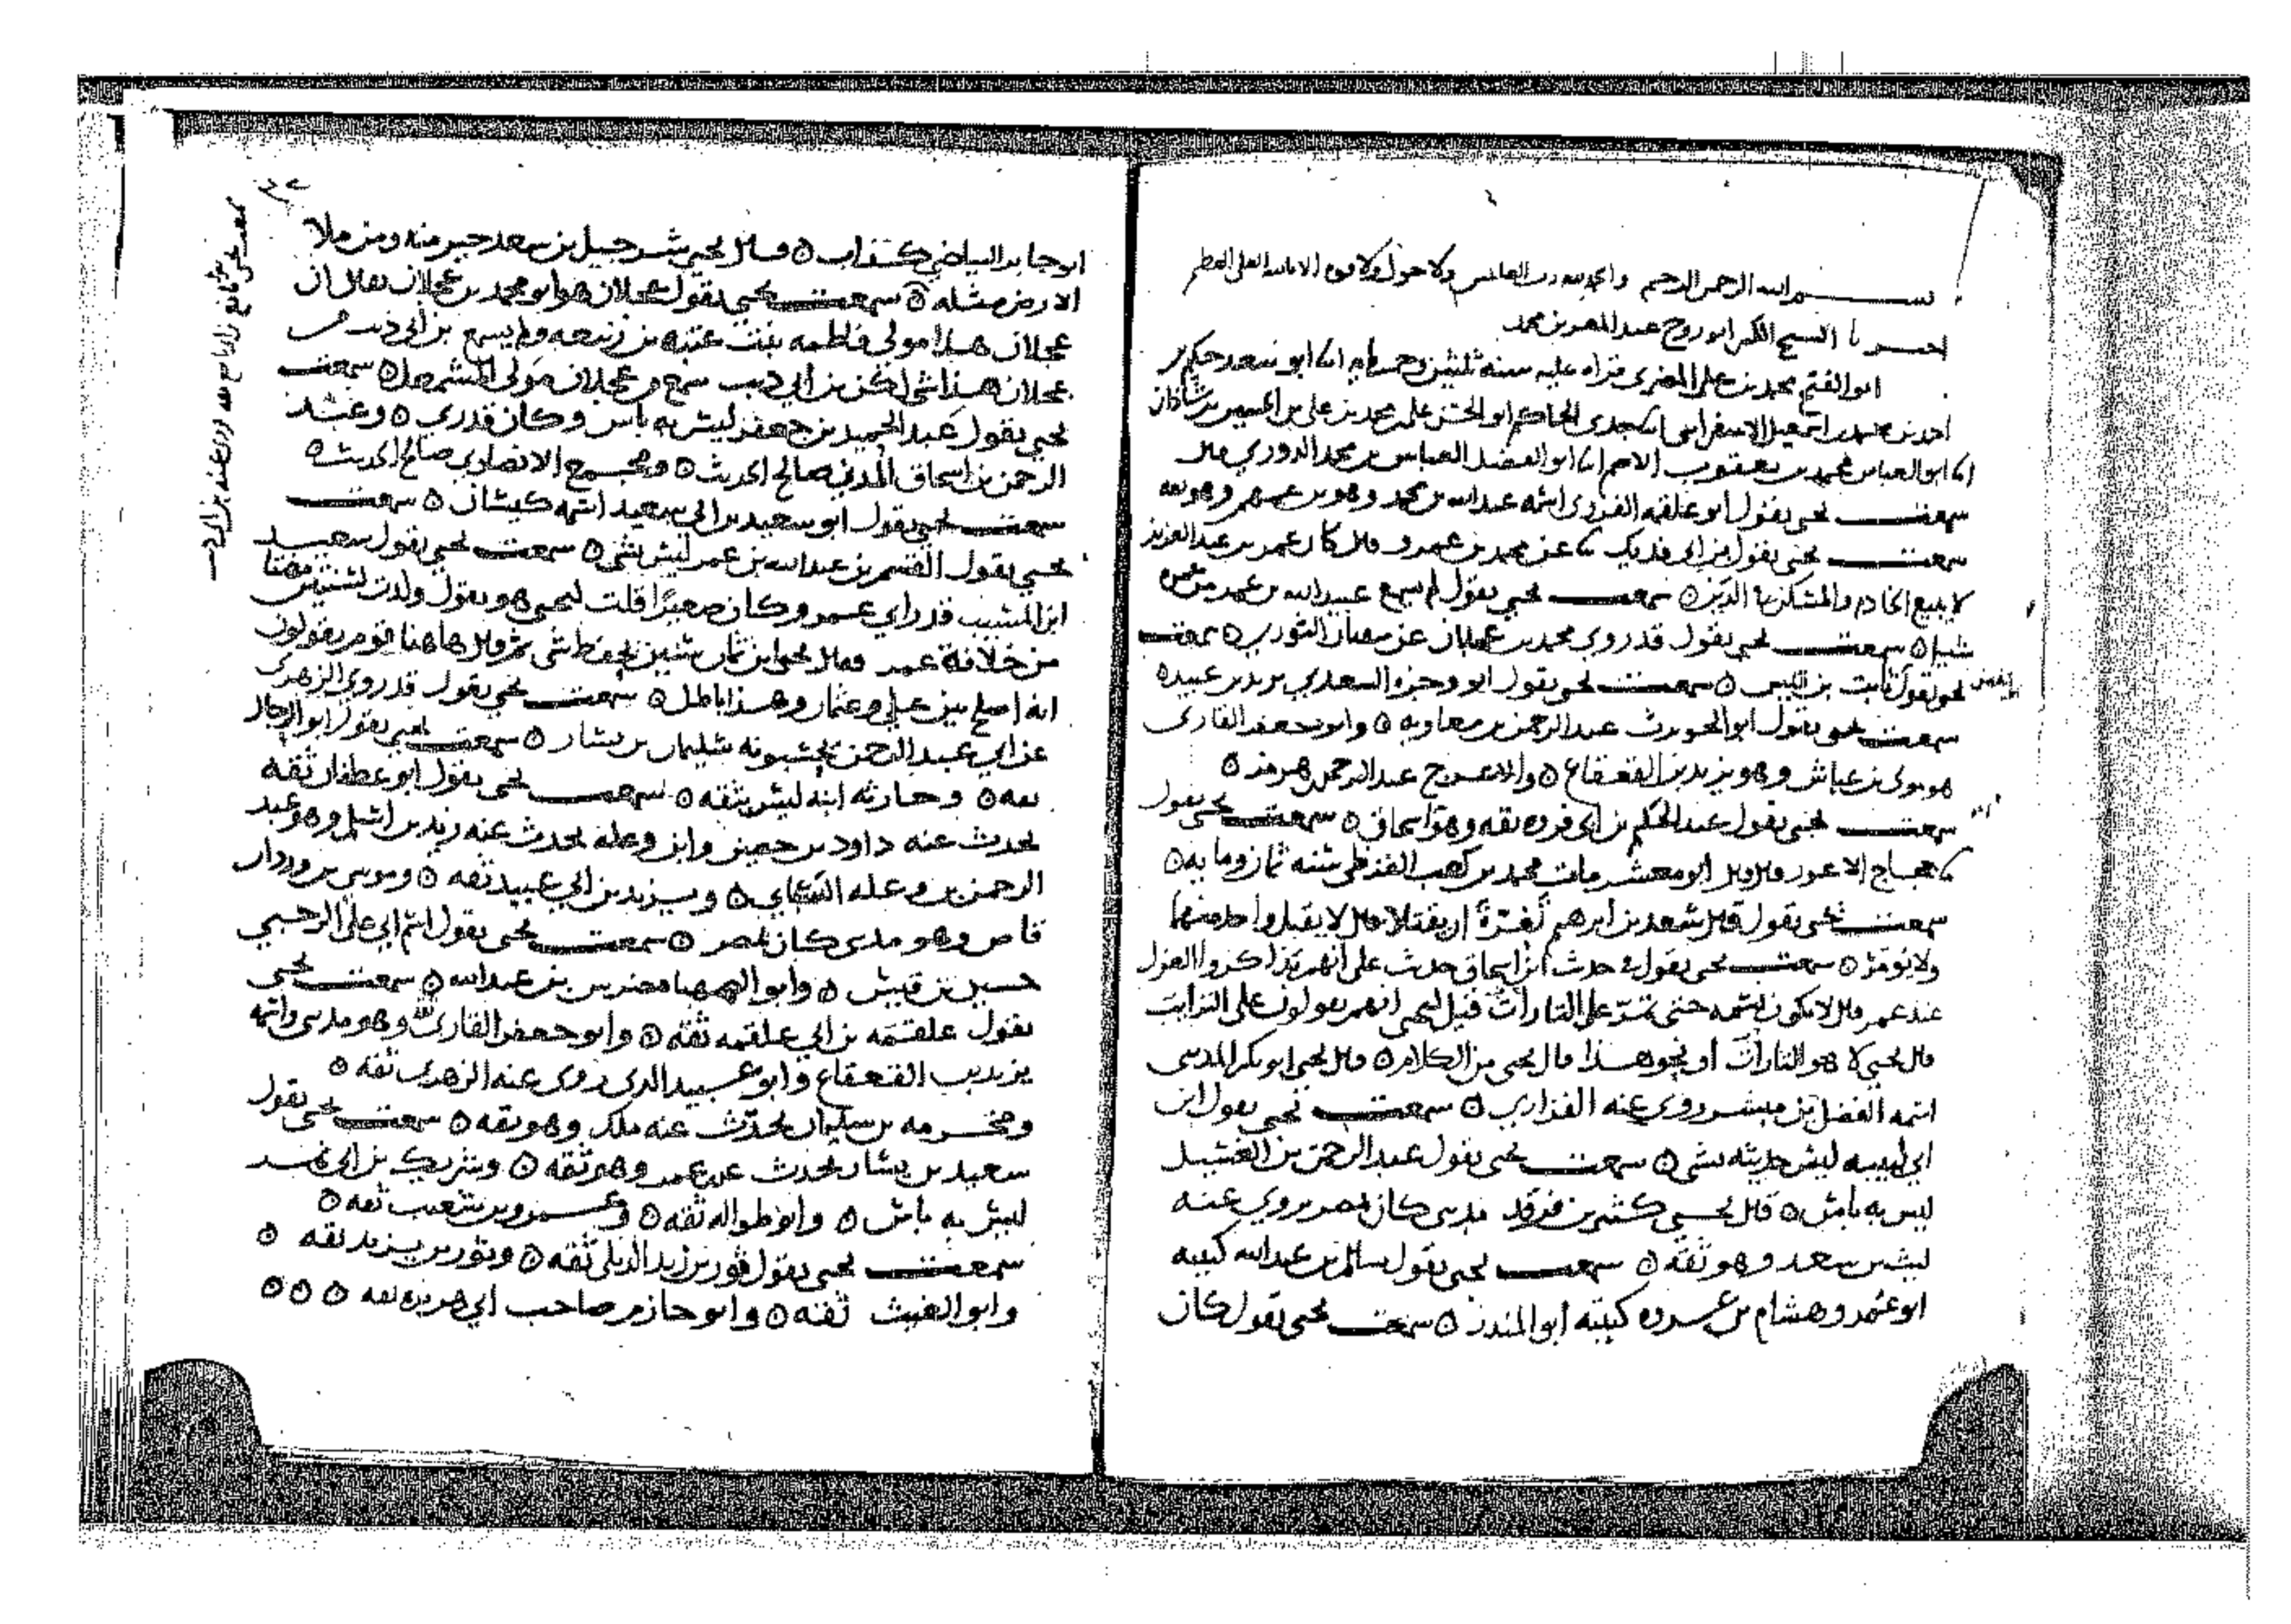 بسم الله الرحمن الرحيم والحمد لله رب العالمين ولا حول ولا قوة الا بالله العلي العظيم
اخبرنا الشيخ ابو روح عبد المعز بن محمد
ابو الفتح محمد بن علي المضري قراه عليه سنة ثلثين وخمسمايه انا ابو سعد حكيم بن
احمد بن محمد بن اسمعيل الاسفرايني انا جدي الحاكم ابو الحسن علي بن محمد بن علي بن الحسين بن شاذان
انا ابو العباس محمد بن يعقوب الاصم انا ابو الفضل العباس بن محمد الدوري قال
سمعت يحيى يقول ابو علقمه الفروي اسمه عبد الله بن محمد وهو بن عمهم وهو ثقه
سمعت يحيى يقول بن ابي فديك عن محمد بن عمرو قال كان عمر بن عبد العزيز
لا يبيع الخادم والمسكن في الدين ○ سمعت يحيى يقول لم يسمع عبيد الله بن عمر من
شيا ○ سمعت يحيى يقول قد روى محمد بن عجلان عن سفيان الثوري ○ سمعت
يحيى يقول ثابت بن قيس ○ سمعت يحيى يقول ابو وجزه السعدي يزيد بن عبيد ○
سمعت يحيى يقول ابو الحويرث عبد الرحمن بن معاويه ○ وابو جعفر القاري
هو مولى بن عياش وهو يزيد بن القعقاع ○ والاعرج عبد الرحمن هرمز ○
سمعت يحيى يقول عبد الحكم بن ابي فروه ثقه وهو اسحاق ○ سمعت يحيى يقول
حجاج الاعور قال قال ابو معشر مات محمد بن كعب القرظي سنة ثمان ومايه ○
سمعت يحيى يقول قال سعد بن ابرهيم ان يقتلا قال لا يقبل واحد منهما
ولا ○ سمعت يحيى يقول في حديث ابن اسحاق حديث علي انهم تذاكروا العزل
عند عمر قال لا تكون نسمه حتى تمر على التارات قيل ليحيى انهم يقولون على الترايب
قال يحيى لا هو التارات او نحو هذا قال يحيى من الكلام ○ قال يحيى ابو بكر المديني
اسمه الفضل بن مبشر روى عنه الفزاري ○ سمعت يحيى يقول ابن
ابي لبيبه ليس حديثه بشي ○ سمعت يحيى يقول عبد الرحمن بن الغسيل
ليس به باس ○ قال يحيى كثير بن فرقد مديني كان بمصر يروي عنه
ليث بن سعد وهو ثقه ○ سمعت يحيى يقول سالم بن عبد الله كنيته
ابو عمر وهشام بن عروه كنيته ابو المنذر ○ سمعت يحيى يقول كان
ابو جابر البياضي كذاب ○ قال يحيى شرحبيل بن سعد خير منه ومن ملا
الارض مثله ○ سمعت يحيى يقول عجلان هو ابو محمد بن عجلان يقال ان
عجلان هذا مولى فاطمه بنت عتبه بن ربيعه ولم يسمع بن ابي ذيب من
عجلان هذا شي لكن بن ابي ذيب سمع من عجلان مولى المشمعل ○ سمعت
يحيى يقول عبد الحميد بن جعفر ليس به باس وكان قدري ○ وعبد
الرحمن بن اسحاق المدني صالح الحديث ○ ومجمع الانصاري صالح الحديث ○
سمعت يحيى يقول ابو سعيد بن ابي سعيد اسمه كيسان ○ سمعت
يحيى يقول القسم بن عبد الله بن عمر ليس بشي ○ سمعت يحيى يقول سعيد
ابن المسيب قد راى عمر وكان صغيرا قلت ليحيى هو يقول ولدت لسنتين مضتا
من خلافة عمر فقال يحيى ابن ثمان سنين يحفظ شي ثم قال هاهنا قوم يقولون
انه اصلح بين علي وعثمان وهذا باطل ○ سمعت يحيى يقول قد روى الزهري
عن ابي عبد الرحمن يحسبونه سليمان بن يسار ○ سمعت يحيى يقول ابو الرجال
ثقه ○ وحارثه ابنه ليس بثقه ○ سمعت يحيى يقول ابو غطفان ثقه
يحدث عنه داود بن حصين وابن وعله يحدث عنه زيد بن اسلم وهو عبد
الرحمن بن وعله السباي ○ ويزيد بن ابي عبيد ثقه ○ وموسى بن وردان
قاص وهو مديني كان بمصر ○ سمعت يحيى يقول اسم ابي علي الرحبي
حسين بن قيس ○ وابو المهيا مضرس بن عبد الله ○ سمعت يحيى
يقول علقمه بن ابي علقمه ثقه ○ وابو جعفر القاري ثقه وهو مديني واسمه
يزيد بن القعقاع وابو عبيد الذي روى عنه الزهري ثقه ○
ومخرمه بن سليمان يحدث عنه ملك وهو ثقه ○ سمعت يحيى يقول
سعيد بن يسار يحدث عن عمر وهو ثقه ○ وشريك بن ابي نمر
ليس به باس ○ وابو طواله ثقه ○ وعمرو بن شعيب ثقه ○
سمعت يحيى يقول ثور بن زيد الديلي ثقه ○ وثور بن يزيد ثقه ○
وابو الغيث ثقه ○ وابو حازم صاحب ابي هريره ثقه ○ ○ ○